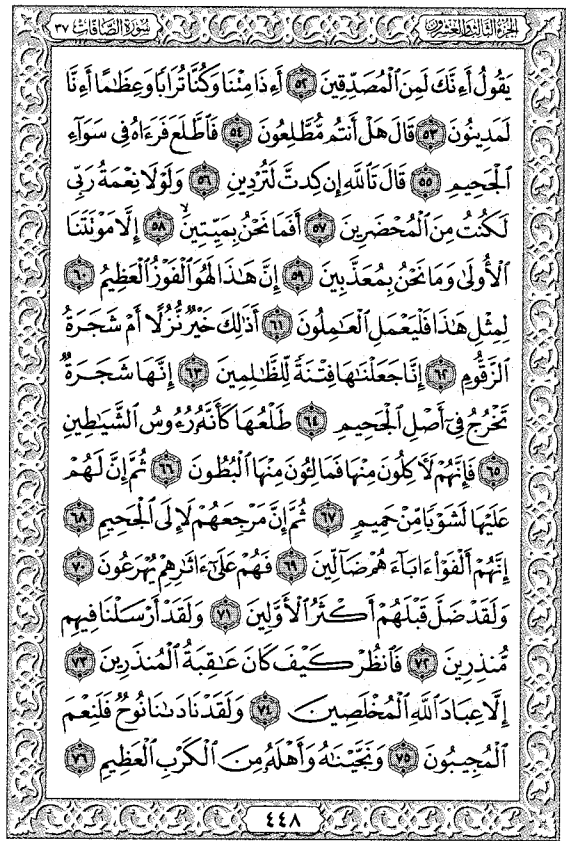 سورة الصافات ٣٧
الجزء الثالث والعشرون
يَقُولُ أَءِنَّكَ لَمِنَ الْمُصَدِّقِينَ ٥٢ أَءِذَا مِتْنَا وَكُنَّا تُرَابًا وَعِظَٰمًا أَءِنَّا
لَمَدِينُونَ ٥٣ قَالَ هَلْ أَنتُم مُّطَّلِعُونَ ٥٤ فَاطَّلَعَ فَرَءَاهُ فِي سَوَآءِ
الْجَحِيمِ ٥٥ قَالَ تَاللَّهِ إِن كِدتَّ لَتُرْدِينِ ٥٦ وَلَوْلَا نِعْمَةُ رَبِّي
لَكُنتُ مِنَ الْمُحْضَرِينَ ٥٧ أَفَمَا نَحْنُ بِمَيِّتِينَ ٥٨ إِلَّا مَوْتَتَنَا
الْأُولَىٰ وَمَا نَحْنُ بِمُعَذَّبِينَ ٥٩ إِنَّ هَٰذَا لَهُوَ الْفَوْزُ الْعَظِيمُ ٦٠
لِمِثْلِ هَٰذَا فَلْيَعْمَلِ الْعَٰمِلُونَ ٦١ أَذَٰلِكَ خَيْرٌ نُّزُلًا أَمْ شَجَرَةُ
الزَّقُّومِ ٦٢ إِنَّا جَعَلْنَٰهَا فِتْنَةً لِّلظَّٰلِمِينَ ٦٣ إِنَّهَا شَجَرَةٌ
تَخْرُجُ فِي أَصْلِ الْجَحِيمِ ٦٤ طَلْعُهَا كَأَنَّهُ رُءُوسُ الشَّيَٰطِينِ
٦٥ فَإِنَّهُمْ لَءَاكِلُونَ مِنْهَا فَمَالِـُٔونَ مِنْهَا الْبُطُونَ ٦٦ ثُمَّ إِنَّ لَهُمْ
عَلَيْهَا لَشَوْبًا مِّنْ حَمِيمٍ ٦٧ ثُمَّ إِنَّ مَرْجِعَهُمْ لَإِلَى الْجَحِيمِ ٦٨
إِنَّهُمْ أَلْفَوْا ءَابَآءَهُمْ ضَآلِّينَ ٦٩ فَهُمْ عَلَىٰ ءَاثَٰرِهِمْ يُهْرَعُونَ ٧٠
وَلَقَدْ ضَلَّ قَبْلَهُمْ أَكْثَرُ الْأَوَّلِينَ ٧١ وَلَقَدْ أَرْسَلْنَا فِيهِم
مُّنذِرِينَ ٧٢ فَانظُرْ كَيْفَ كَانَ عَٰقِبَةُ الْمُنذَرِينَ ٧٣
إِلَّا عِبَادَ اللَّهِ الْمُخْلَصِينَ ٧٤ وَلَقَدْ نَادَىٰنَا نُوحٌ فَلَنِعْمَ
الْمُجِيبُونَ ٧٥ وَنَجَّيْنَٰهُ وَأَهْلَهُ مِنَ الْكَرْبِ الْعَظِيمِ ٧٦
٤٤٨